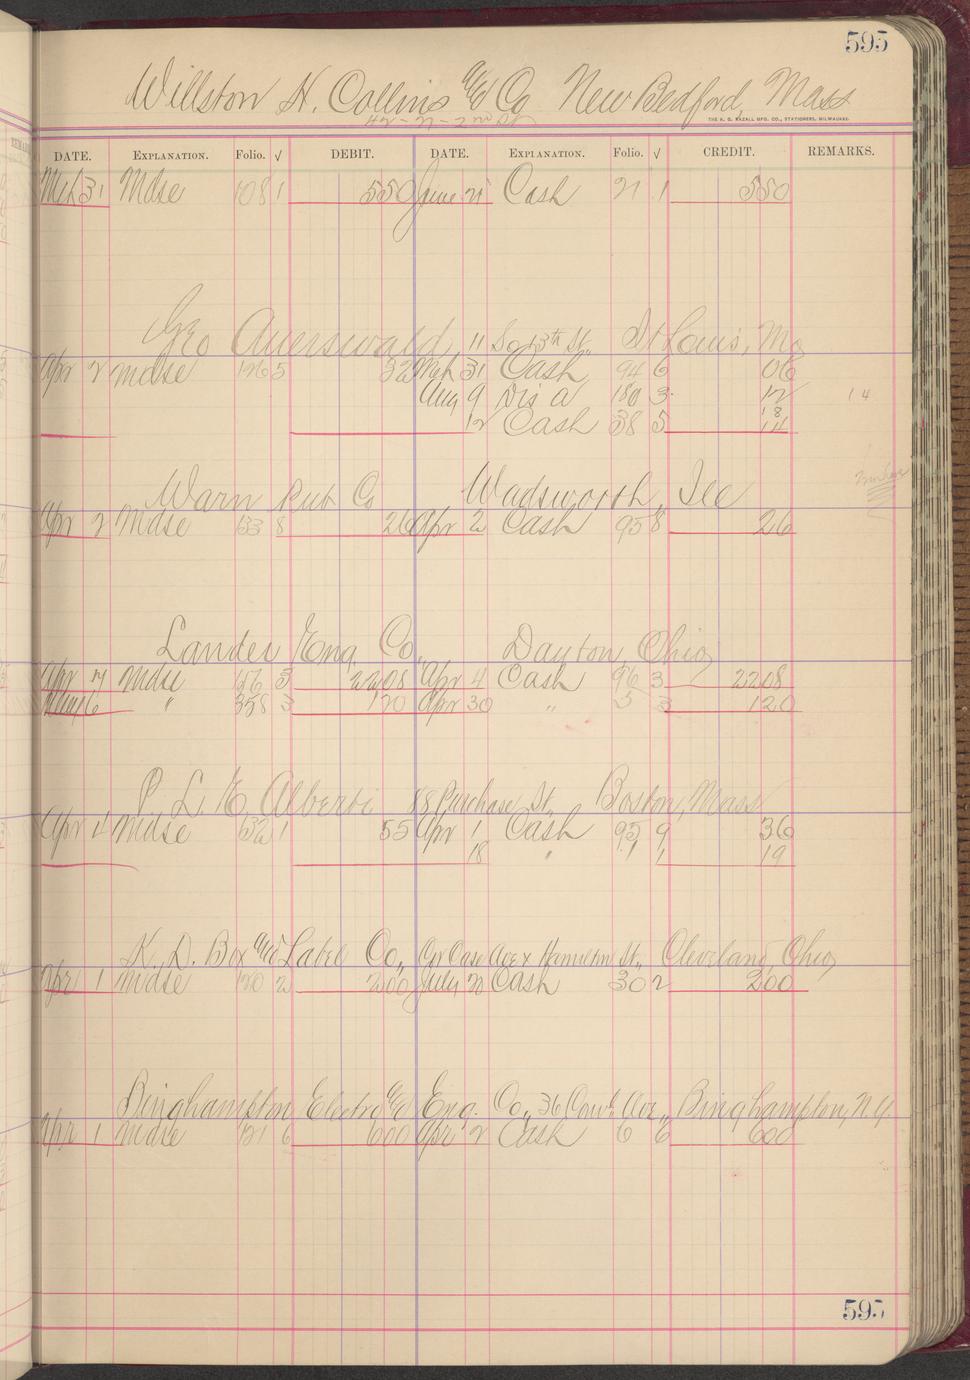 595
Willston H. Collins and Co New Bedford, Mass
42 - N - 2nd St
THE A. G. KAZALL MFG. CO., STATIONERS, MILWAUKEE.
DATE. EXPLANATION. Folio. √ DEBIT. DATE. EXPLANATION. Folio. √ CREDIT. REMARKS.
Mch 31 Mdse 108 1 550 June 21 Cash 21 1 550
Geo Auerswald, 11 So 13th St., St Louis, Mo
Apr 2 Mdse 126 5 32 Mch 31 Cash 94 6 06
Aug 9 Dis a 180 3 12 14
12 Cash 38 5 14
18
Warn Pub Co Wadsworth, Ill
Apr 2 Mdse 133 8 26 Apr 2 Cash 95 8 26
Lander Eng. Co., Dayton Ohio
Apr 4 Mdse 156 3 2208 Apr 4 Cash 96 3 2208
6 " 358 3 120 Apr 30 " 5 3 120
P. L. E. Alberti 88 Purchase St., Boston, Mass
Apr 4 Mdse 132 1 55 Apr 1 Cash 95 9 36
18 " 1 1 19
K. D. Box and Label Co., Cor Case Ave & Hamilton St., Cleveland, Ohio
Apr 1 Mdse 120 2 200 July 20 Cash 30 2 200
Binghampton Electro and Eng. Co., 36 Court Ave., Binghampton, N.Y.
Apr 1 Mdse 121 6 600 Apr 2 Cash 6 6 600
595